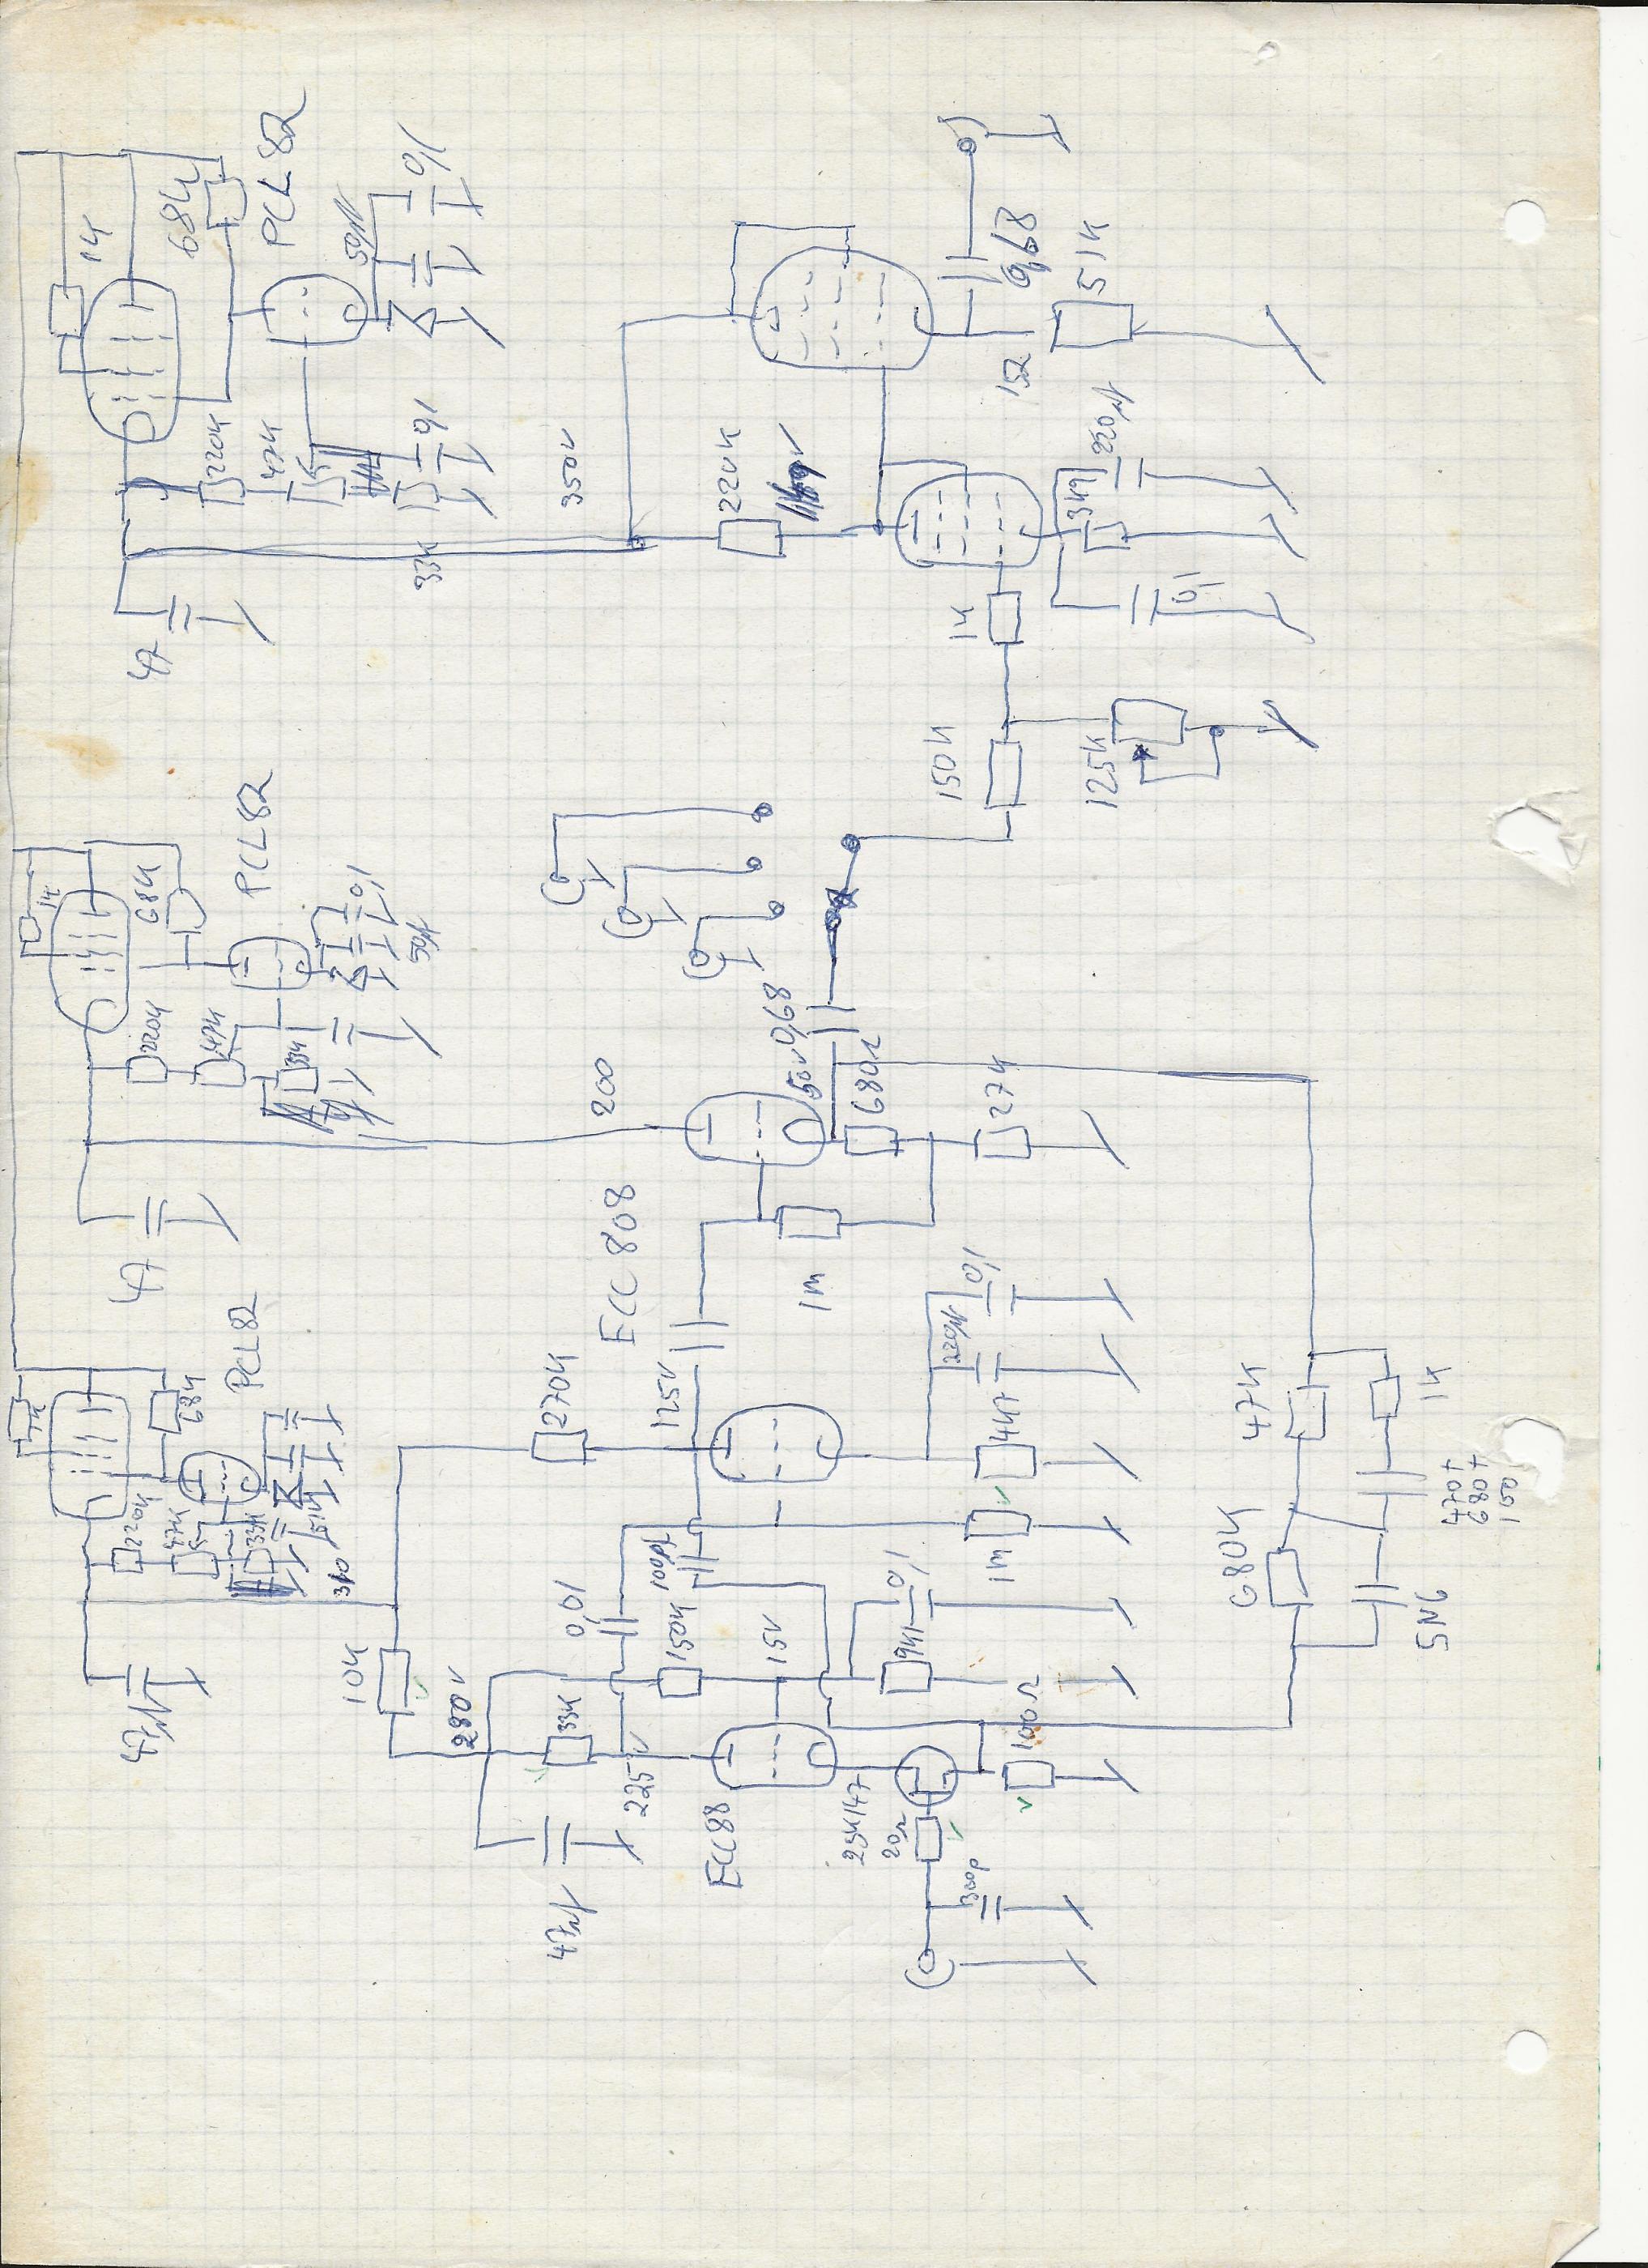 1K
68K
PCL 82
50µ
0,1
220K
47K
0,1
47
33K
350V
220K
0,68
51K
152
1K
3K9
220µ
0,1
150K
125K
1K
68K
PCL82
0,1
50µ
220K
47K
33K
47
200
ECC 808
50V
0,68
680Ω
27K
1M
1K
68K
PCL82
220K
47K
33K
51K
310
47µ
10K
280V
270K
125V
220µ
0,1
4K7
1M
0,01
100pf
150K
15V
9K1
0,1
33K
225V
47µ
ECC88
2SK147
20Ω
100Ω
300p
47K
1K
680K
5N6
470+
680+
150